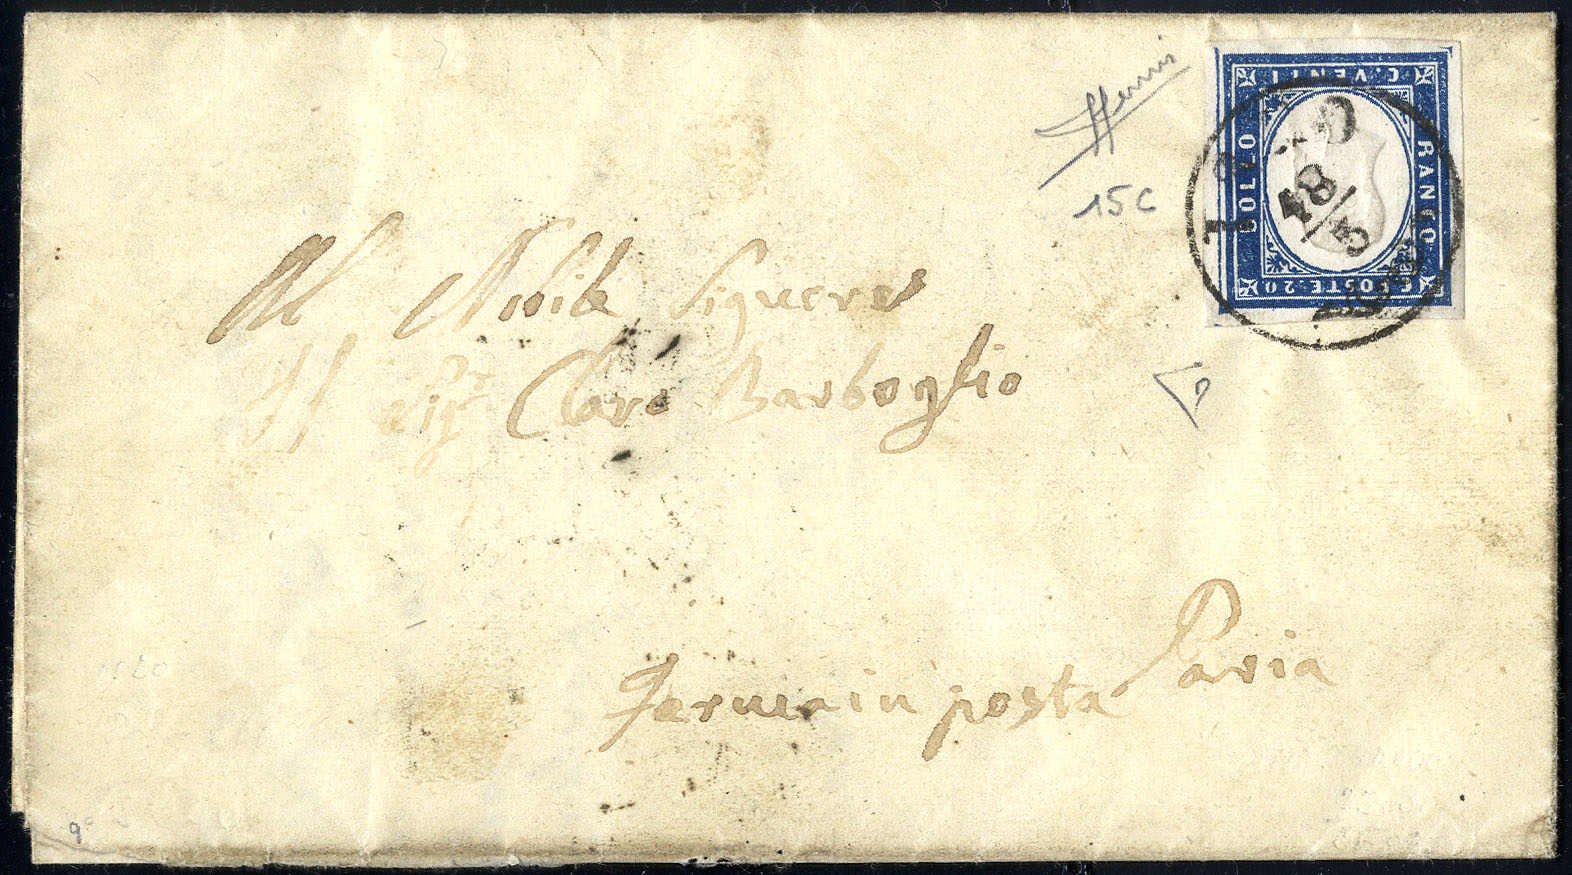 C. VENTI
BOLLO
FRANCO
C. POSTE. 20
18/5
15 C
Al Nobile Signore
Il Sigr Claro Barboglio
Ferma in posta Pavia
9